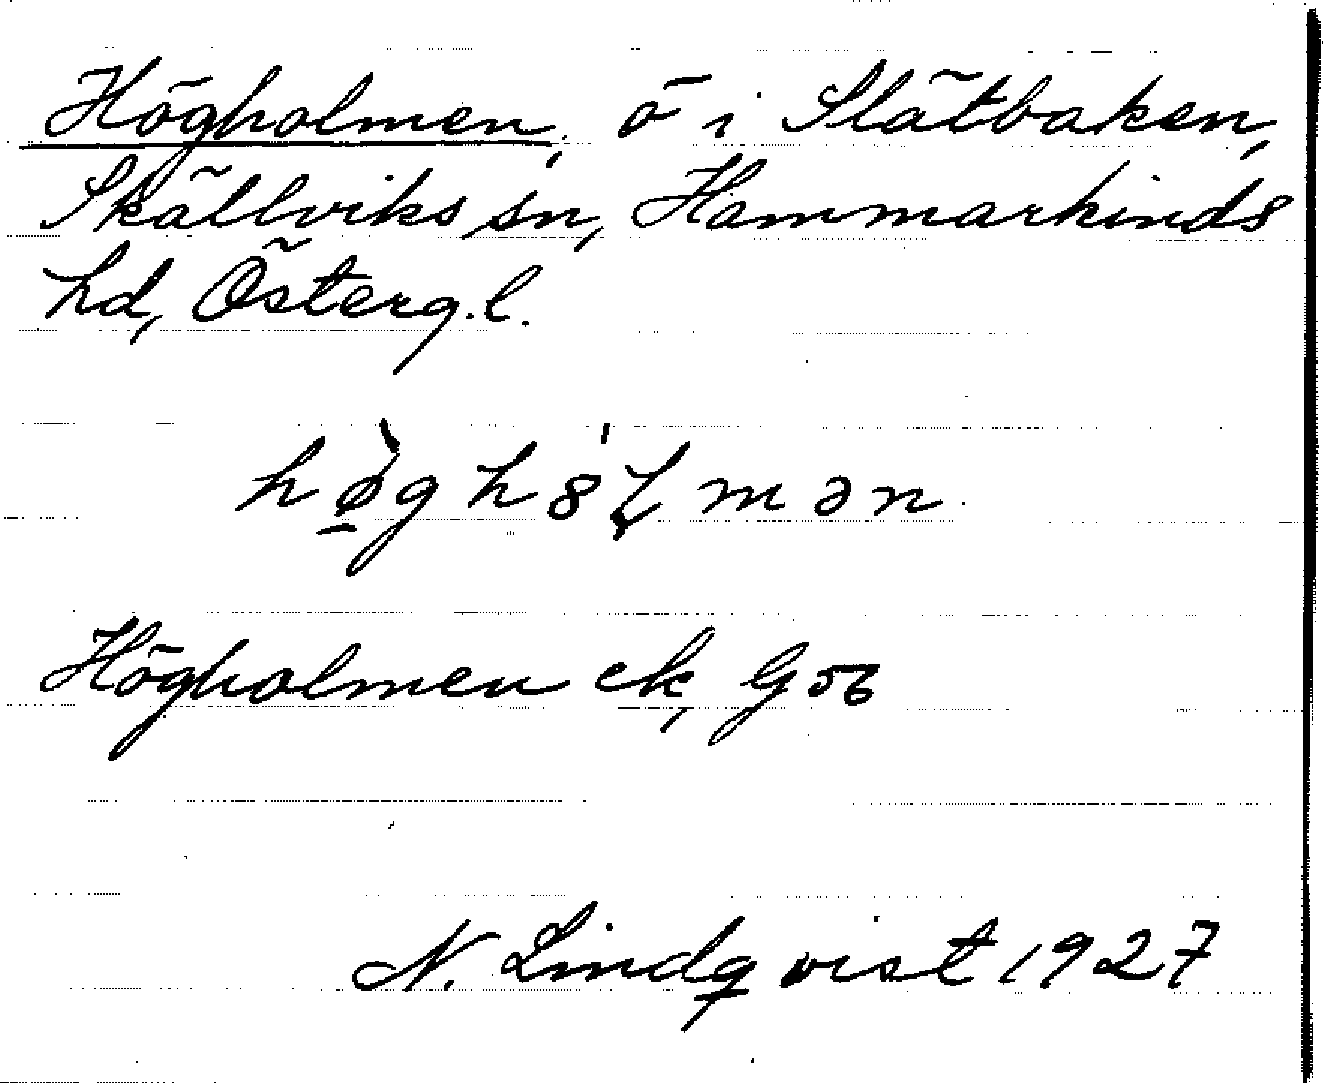 Högholmen, ö i Slätbaken,
Skällviks sn, Hammarkinds
hd, Österg.l.
hø̠̀gh8́ɭmən
Högholmen ek, G56
N. Lindqvist 1927